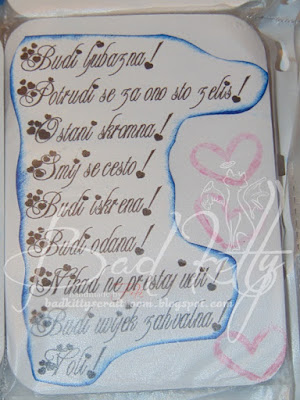 Budi ljubazna!
Potrudi se za ono sto zelis!
Ostani skromna!
Smij se cesto!
Budi iskrena!
Budi odana!
Bad Kitty
Nikad ne prestaj uciti!
badkittyscraft.com.blogspot.com
Budi uvijek zahvalna!
Voli!